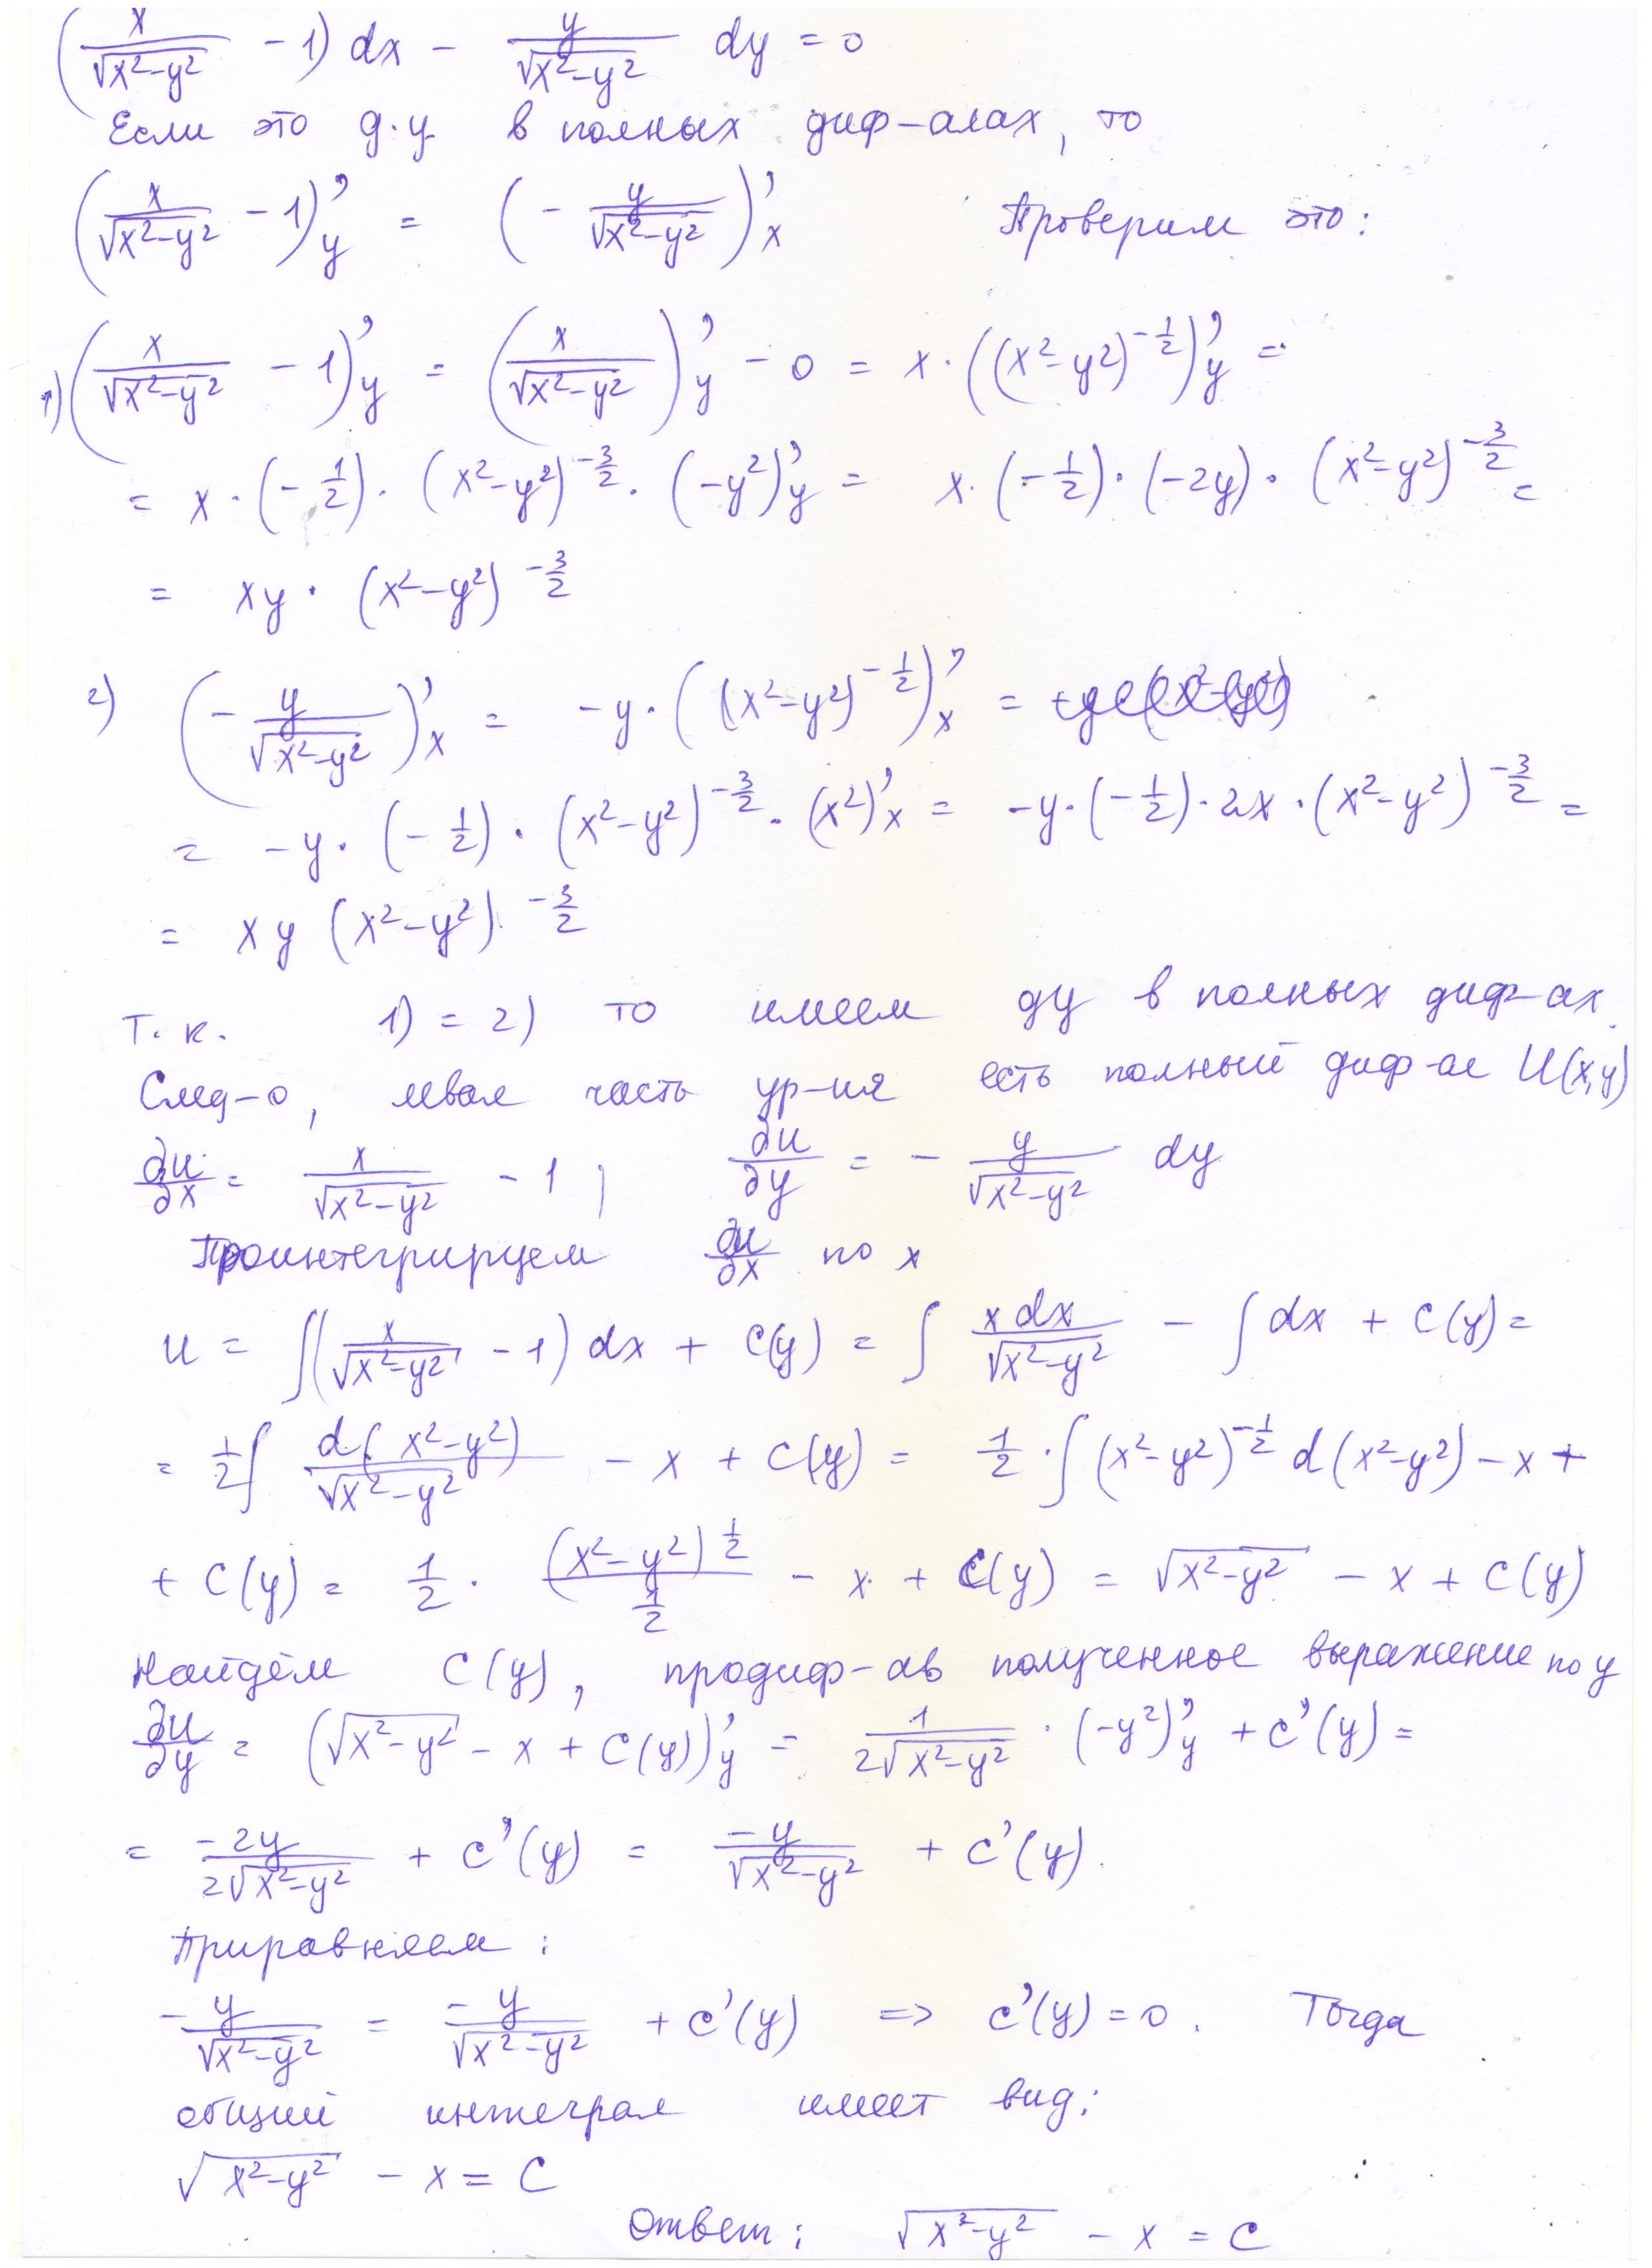 (x/√(x²-y²) - 1) dx - y/√(x²-y²) dy = 0
Если это д.у в полных диф-алах, то
(x/√(x²-y²) - 1)'y = (- y/√(x²-y²))'x Проверим это:
1) (x/√(x²-y²) - 1)'y = (x/√(x²-y²))'y - 0 = x · ((x²-y²)^(-1/2))'y =
= x · (-1/2) · (x²-y²)^(-3/2) · (-y²)'y = x · (-1/2) · (-2y) · (x²-y²)^(-3/2) =
= xy · (x²-y²)^(-3/2)
2) (- y/√(x²-y²))'x = -y · ((x²-y²)^(-1/2))'x =
= -y · (-1/2) · (x²-y²)^(-3/2) · (x²)'x = -y · (-1/2) · 2x · (x²-y²)^(-3/2) =
= xy (x²-y²)^(-3/2)
Т.к. 1) = 2) то имеем ду в полных диф-ах.
След-о, левая часть ур-ия есть полный диф-ал U(x,y)
∂u/∂x = x/√(x²-y²) - 1 ; ∂u/∂y = - y/√(x²-y²) dy
Проинтегрируем ∂u/∂x по x
u = ∫(x/√(x²-y²) - 1) dx + C(y) = ∫ x dx/√(x²-y²) - ∫ dx + C(y) =
= 1/2 ∫ d(x²-y²)/√(x²-y²) - x + C(y) = 1/2 · ∫ (x²-y²)^(-1/2) d(x²-y²) - x +
+ C(y) = 1/2 · (x²-y²)^(1/2)/(1/2) - x + C(y) = √(x²-y²) - x + C(y)
Найдём C(y), продиф-ав полученное выражение по y
∂u/∂y = (√(x²-y²) - x + C(y))'y = 1/(2√(x²-y²)) · (-y²)'y + C'(y) =
= -2y/(2√(x²-y²)) + C'(y) = -y/√(x²-y²) + C'(y).
Приравняем:
-y/√(x²-y²) = -y/√(x²-y²) + C'(y) => C'(y) = 0. Тогда
общий интеграл имеет вид:
√(x²-y²) - x = C
Ответ: √(x²-y²) - x = C